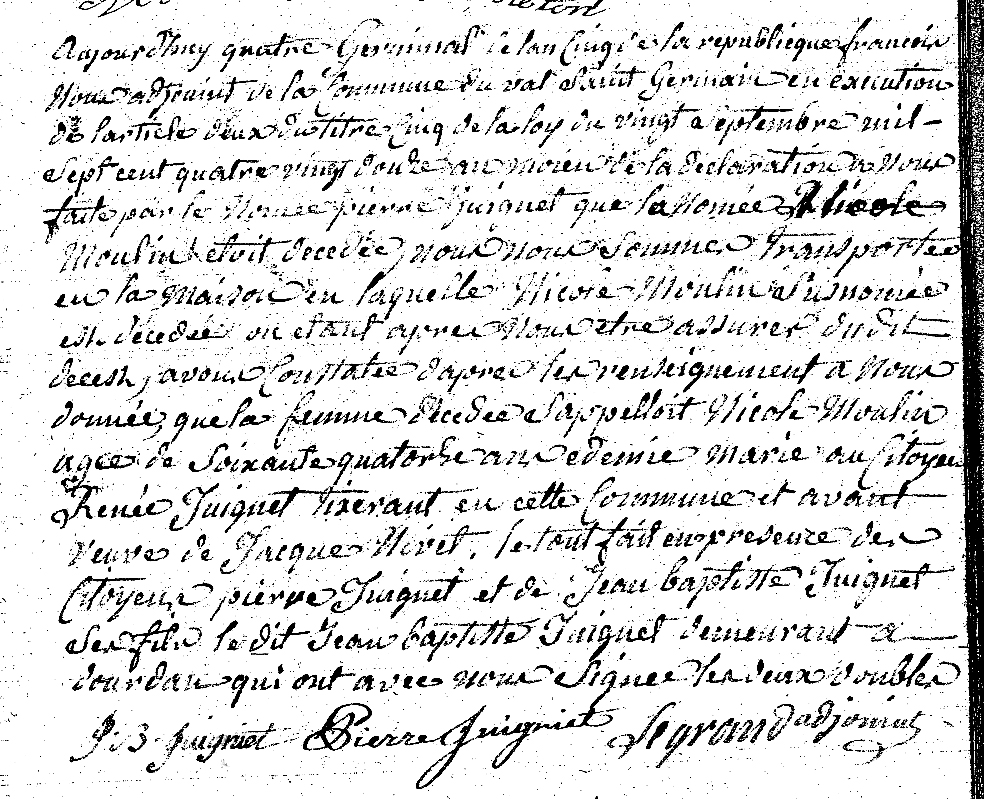 Aujourdhuy quatre Germinal de lan Cinq de la republique francois
Nous adjoint de la Commune du val Saint Germain en execution
de larticle deux du titre Cinq de la loy du vingt Septembre mil-
Sept cent quatre vingt douze au moien de la declaration a Nous
faite par le Nomée pierre Juignet que la Nomée Nicole
Moulin etoit decedée, nous nous Sommes transportée
en la Maison en laquelle Nicole Moulin Susnomée
est decedée ou etant apres Nous etre assurer dudit
decesh, javons Constatée dapres les renseignement a Nous
donnée, que la femme decedée Sappelloit Nicole Moulin
agee de Soixante quatorhe ans edemie marie au Citoyen
Renée Juignet vixerant en cette Commune et avant
veuve de Jacque Nivet, le tout fait en presence des
Citoyens pierre Juignet et de Jean baptiste Juignet
Ses fils le dit Jean baptiste Juignet demeurant a
dourdan qui ont avec nous Signee les deux doubles
J. B. Juigniet Pierre Juigniet Legrand adjoint